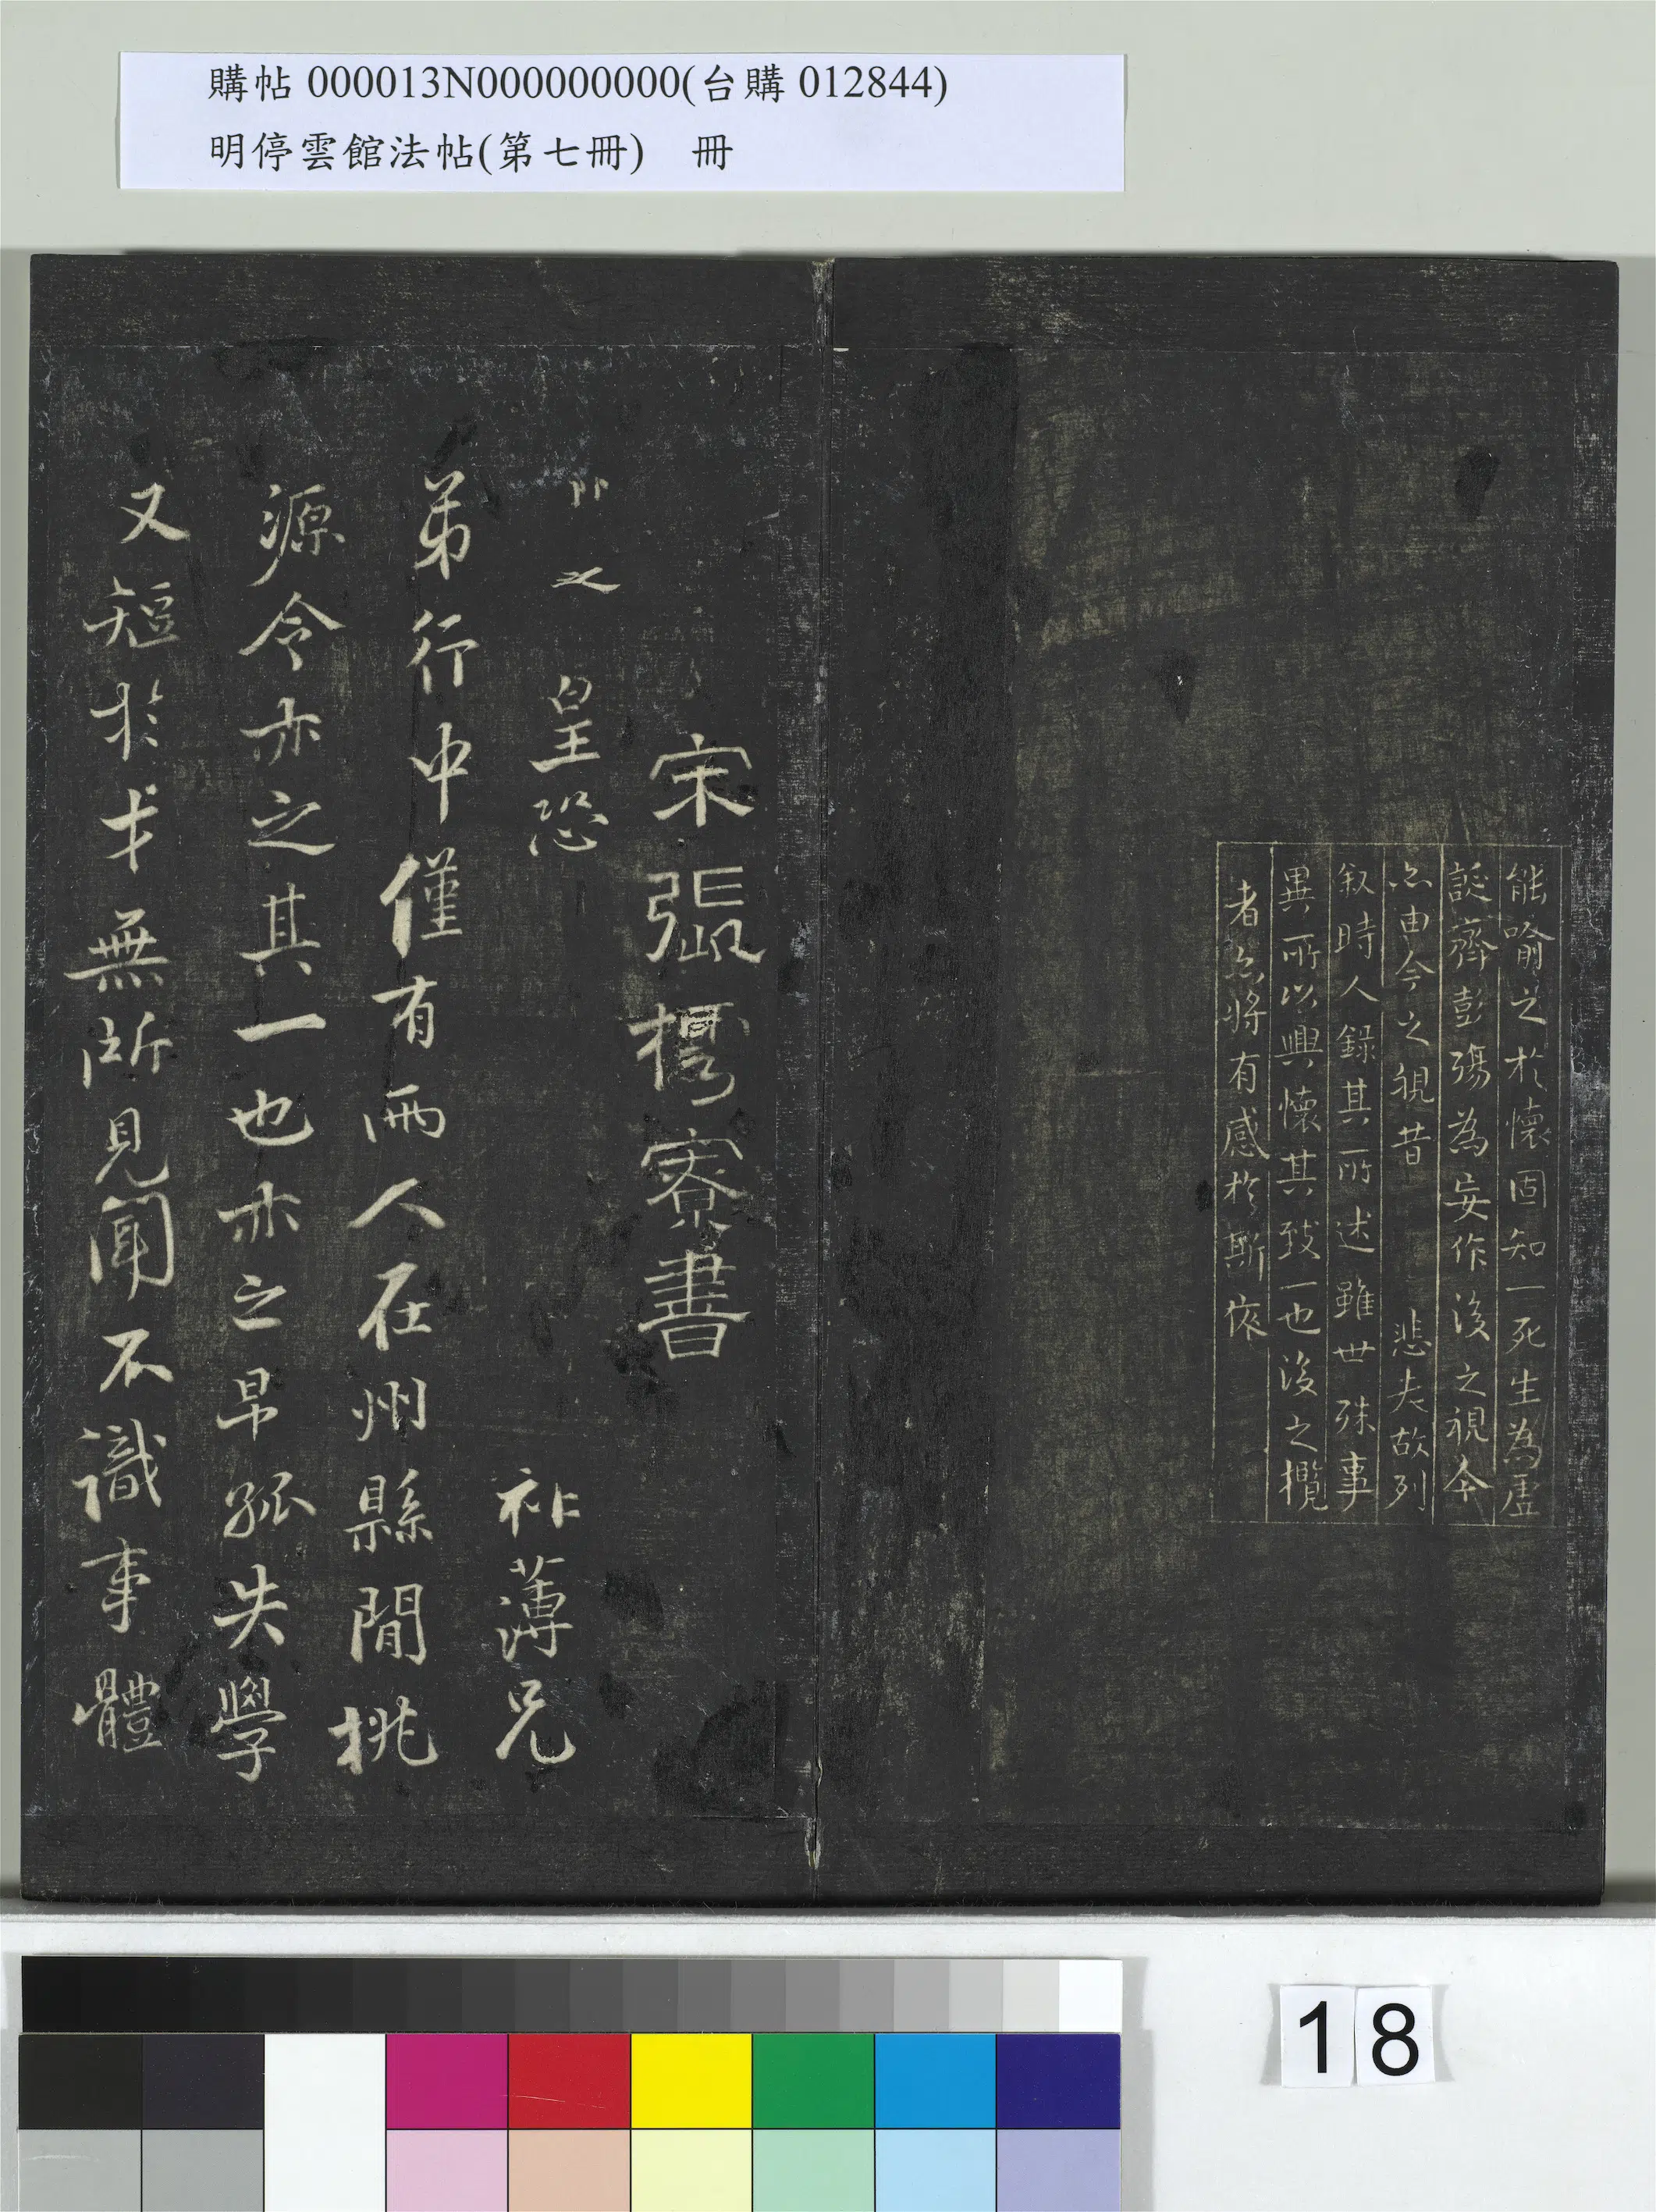 購帖 000013N000000000(台購 012844)
明停雲館法帖(第七冊)　冊
能喻之於懷固知一死生為虛
誕齊彭殤為妄作後之視今
亦由今之視昔　悲夫故列
敘時人錄其所述雖世殊事
異所以興懷其致一也後之攬
者亦將有感於斯依
宋張樗寮書
即之　皇恐　祚薄兄
弟行中僅有兩人在州縣間桃
源令亦之其一也亦之早孤失學
又短於才無所見聞不識事體
18